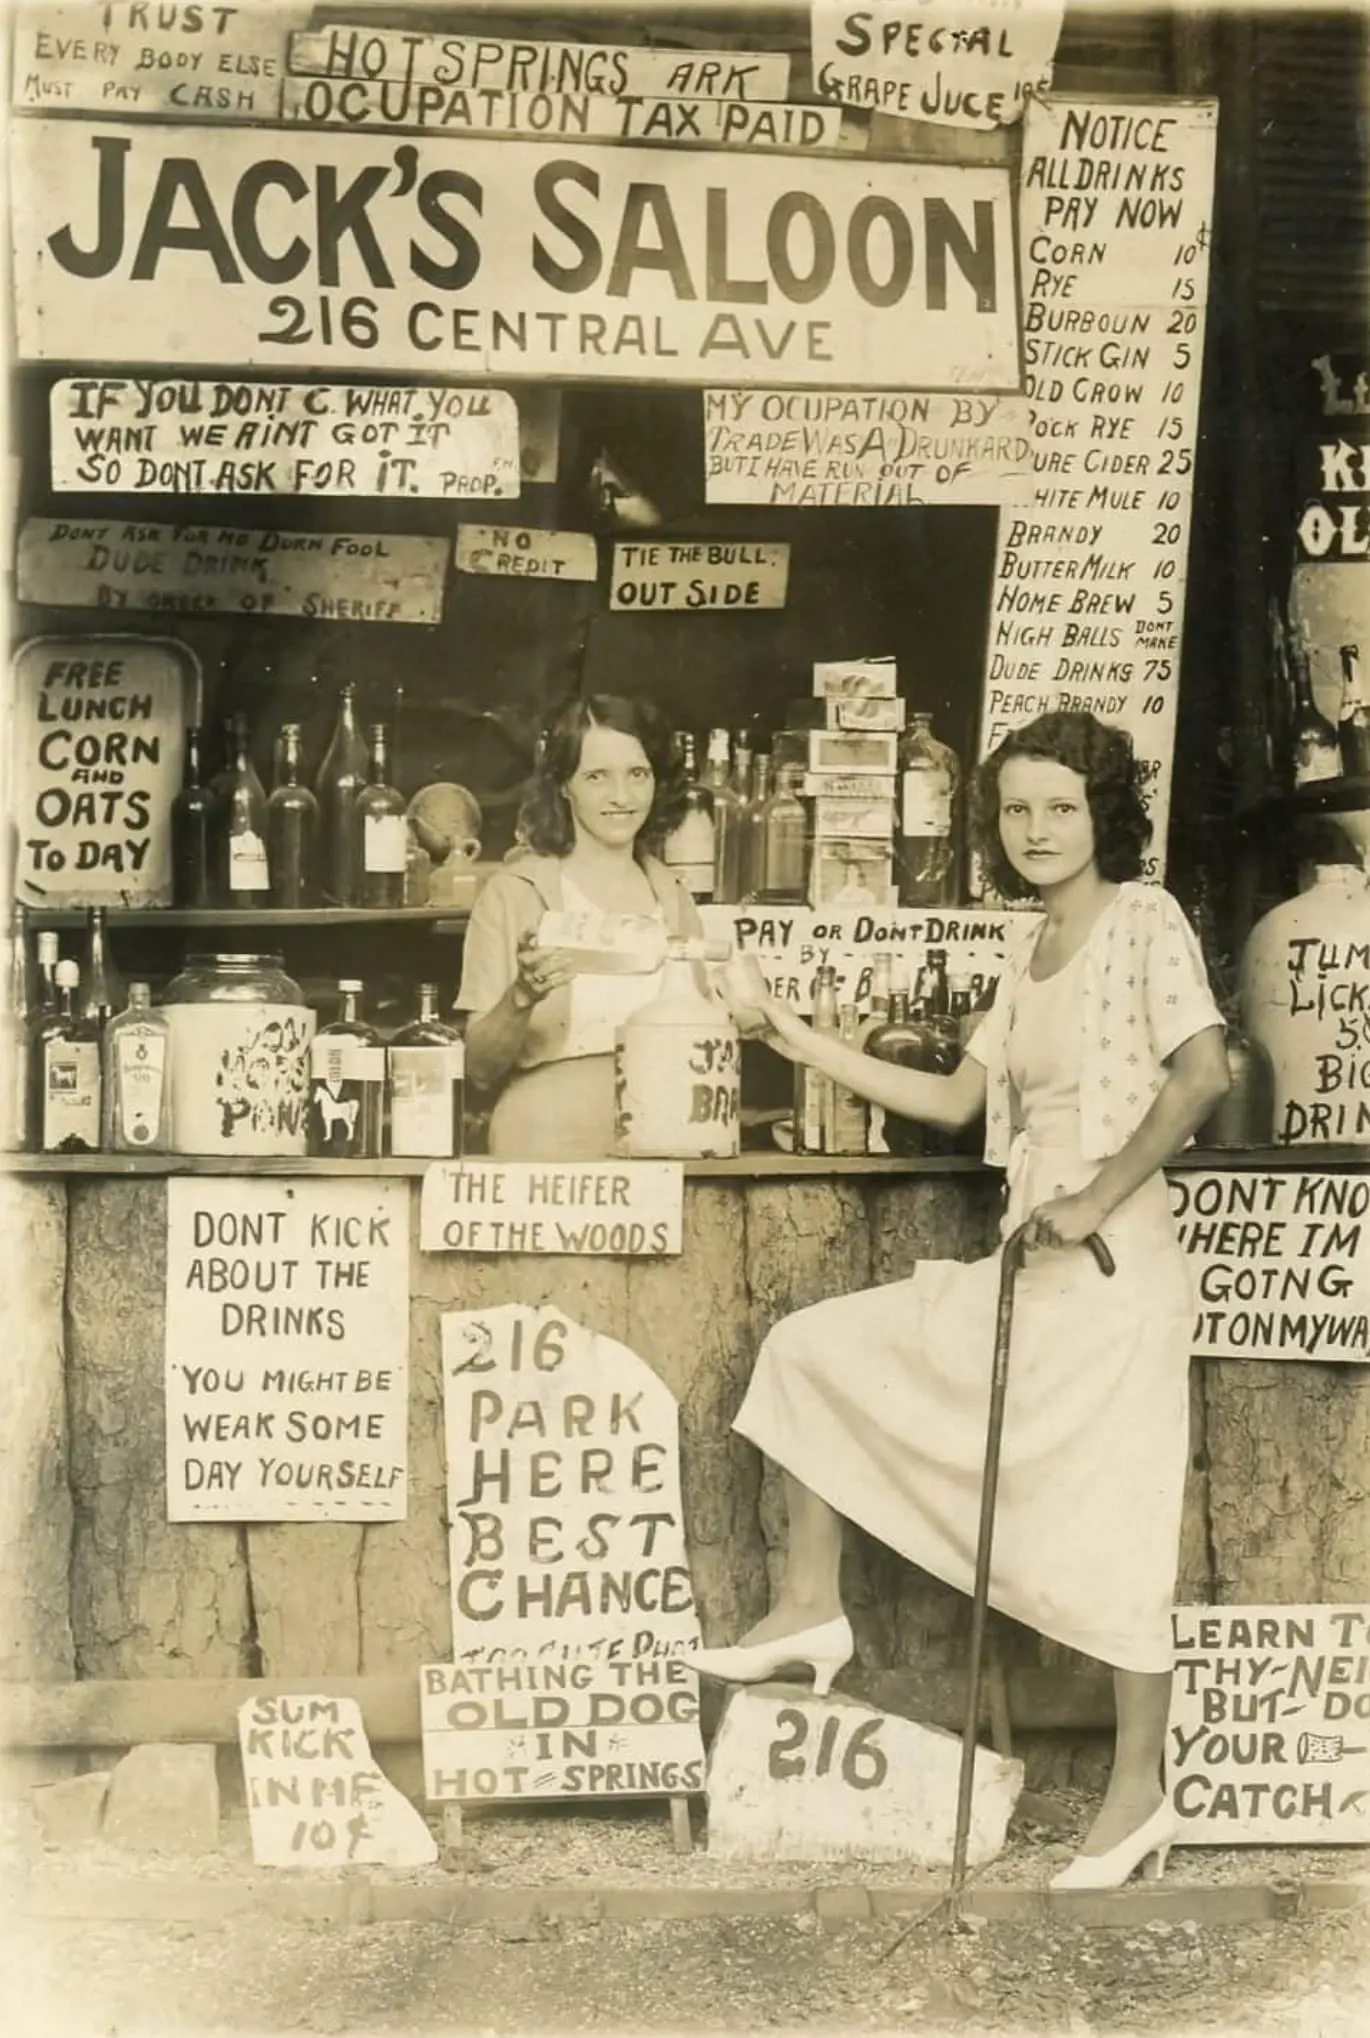 TRUST
EVERY BODY ELSE
MUST PAY CASH
HOT SPRINGS ARK
OCUPATION TAX PAID
SPECIAL
GRAPE JUCE 10¢
JACK'S SALOON
216 CENTRAL AVE
NOTICE
ALL DRINKS
PAY NOW
CORN 10¢
RYE 15
BURBOUN 20
STICK GIN 5
OLD CROW 10
ROCK RYE 15
URE CIDER 25
HITE MULE 10
BRANDY 20
BUTTER MILK 10
HOME BREW 5
HIGH BALLS DONT MAKE
DUDE DRINKS 75
PEACH BRANDY 10
IF YOU DONT C. WHAT YOU
WANT WE AINT GOT IT
SO DONT ASK FOR IT. PROP.
MY OCUPATION BY
TRADE WAS A DRUNKARD
BUT I HAVE RUN OUT OF
MATERIAL
DONT ASK FOR NO DURN FOOL
DUDE DRINK
BY ORDER OF SHERIFF
NO
CREDIT
TIE THE BULL
OUT SIDE
FREE
LUNCH
CORN
AND
OATS
TO DAY
PAY OR DON'T DRINK
BY
JUM
LICK
5¢
BIG
DRIN
'THE HEIFER
OF THE WOODS
DONT KICK
ABOUT THE
DRINKS
'YOU MIGHT BE
WEAK SOME
DAY YOURSELF
216
PARK
HERE
BEST
CHANCE
BATHING THE
OLD DOG
IN
HOT SPRINGS
SUM
KICK
IN HE
10¢
216
DONT KNO
HERE IM
GOTNG
UT ON MY WA
LEARN T
THY-NEI
BUT- DO
YOUR
CATCH